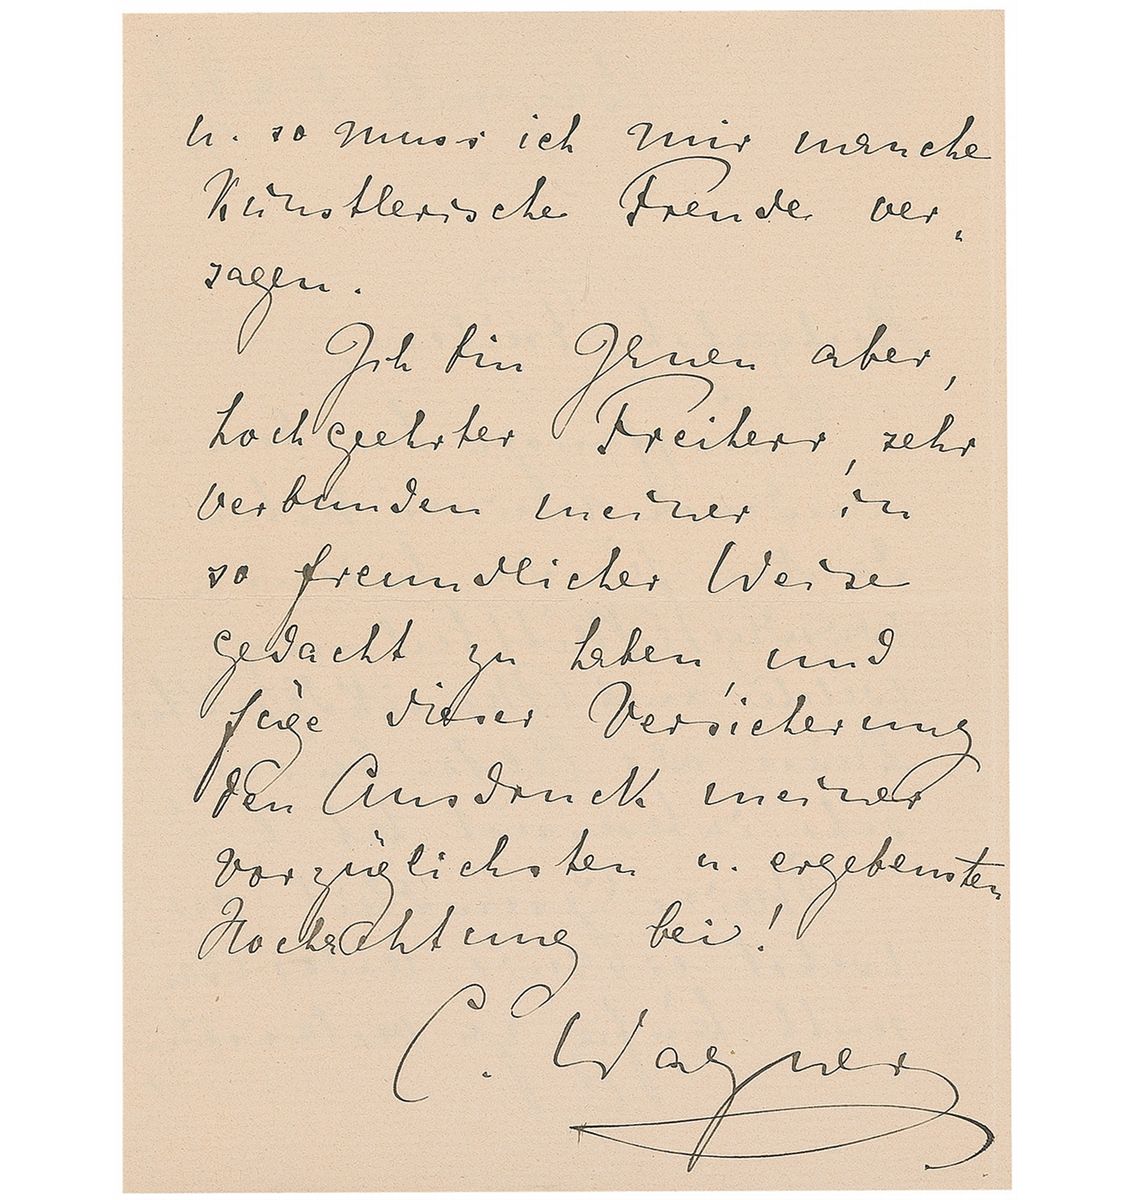 u. so muss ich mir manche
Künstlerische Freude ver-
sagen.
Ich bin Ihnen aber,
hochgeehrter Freiherr, sehr
verbunden meiner in
so freundlicher Weise
gedacht zu haben, und
füge dieser Versicherung
den Ausdruck meiner
vorzüglichsten u. ergebensten
Hochachtung bei!
C. Wagner